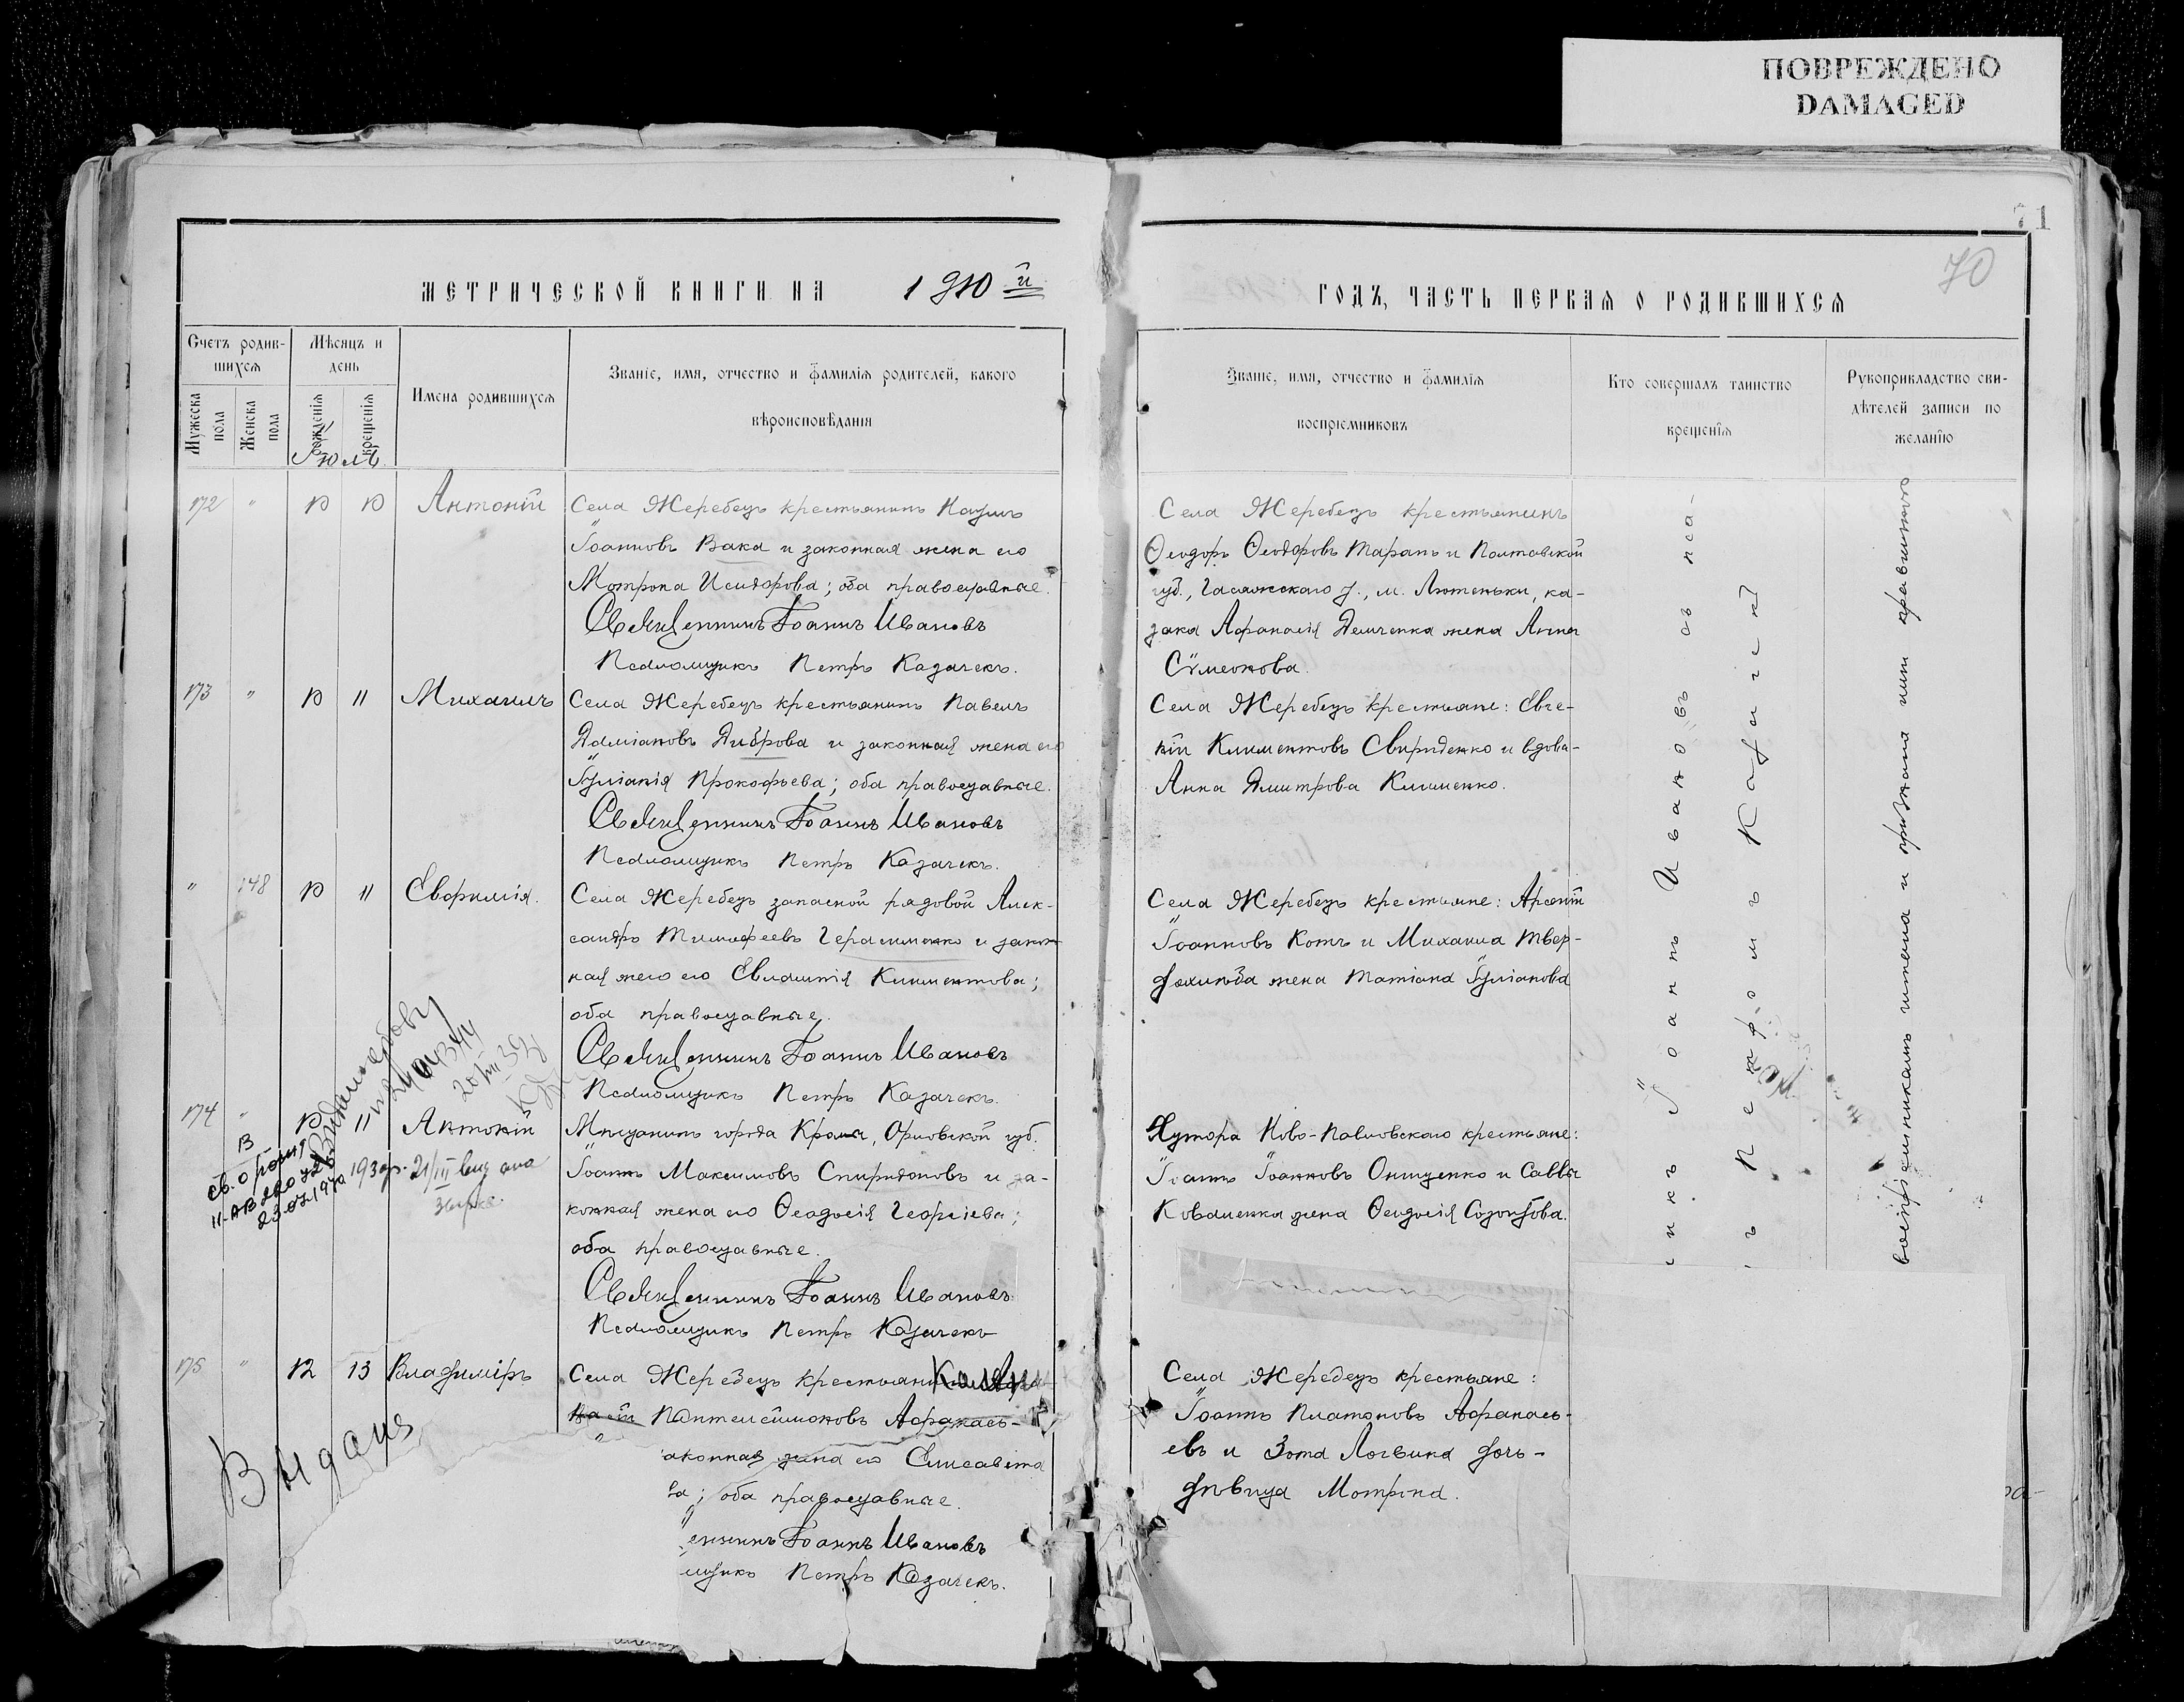 ПОВРЕЖДЕНО
DAMAGED
71
70
МЕТРИЧЕСКОЙ КНИГИ НА 1910 й
Счетъ родив-
шихся
Мѣсяцъ и
день
Имена родившихся
Званіе, имя, отчество и фамилія родителей, какого
вѣроисповѣданія
Мужеска
пола
Женска
пола
рожденія
крещенія
Іюль
172 " 10 10 Антоній
Села Жеребецъ крестьянинъ Наумъ
Іоанновъ Вака и законная жена его
Мотрона Исидорова; оба православные.
Священникъ Іоаннъ Ивановъ
Псаломщикъ Петръ Казачекъ.
173 " 10 11 Михаилъ
Села Жеребецъ крестьянинъ Павелъ
Даміановъ Диброва и законная жена его
Іуліанія Прокофьева; оба православные.
Священникъ Іоаннъ Ивановъ
Псаломщикъ Петръ Казачекъ.
" 148 10 11 Евфимія.
Села Жеребецъ запасной рядовой Алек-
сандръ Тимофеевъ Герасименко и закон-
ная жена его Евлампія Климентова;
оба православные.
Священникъ Іоаннъ Ивановъ
Псаломщикъ Петръ Казачекъ.
174 " 10 11 Антоній
Мѣщанинъ города Кромъ, Орловской губ.
Іоаннъ Максимовъ Спиридоновъ и за-
конная жена его Феодосія Георгіева;
оба православные.
Священникъ Іоаннъ Ивановъ
Псаломщикъ Петръ Казачекъ
св. о рожд
II-АВ
23.02.1970
175 " 12 13 Владиміръ
Села Жеребецъ крестьянинъ
Пантелеймоновъ Афанась-
аконная жена его Елисавета
ва; оба православные.
енникъ Іоаннъ Ивановъ
мщикъ Петръ Казачекъ.
Выдано
ГОДЪ, ЧАСТЬ ПЕРВАЯ О РОДИВШИХСЯ
Званіе, имя, отчество и фамилія
воспріемниковъ
Кто совершалъ таинство
крещенія
Рукоприкладство сви-
дѣтелей записи по
желанію
Села Жеребецъ крестьянинъ
Феодоръ Феодоровъ Таранъ и Полтавской
губ., Гадяжскаго у., м. Лютеньки, ка-
зака Афанасія Демченка жена Анна
Сѵмеонова.
Села Жеребецъ крестьяне: Евге-
ній Климентовъ Свириденко и вдова-
Анна Дмитрова Клименко.
Села Жеребецъ крестьяне: Арсеній
Іоанновъ Котъ и Михаила Твер-
дохлѣба жена Татіана Іуліанова
Хутора Ново-Павловскаго крестьяне:
Іоаннъ Іоанновъ Онищенко и Саввы
Коваленка жена Феодосія Созонтова.
Села Жеребецъ крестьяне:
Іоаннъ Платоновъ Афанась-
евъ и Зота Логвина дочь-
дѣвица Мотрона.
икъ Іоаннъ Ивановъ съ пса-
ъ Петромъ Казачек